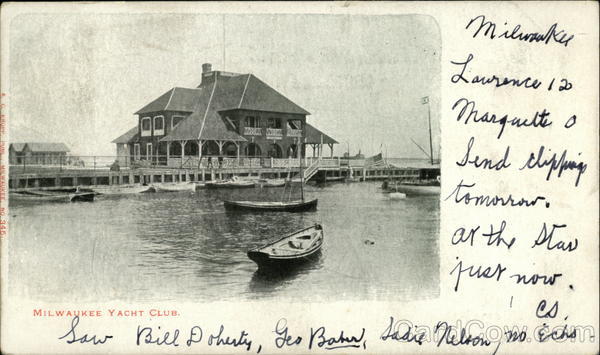 Milwaukee
Lawrence 12
Marquette 0
Send clipping
tomorrow.
At the Star
just now.
CS.
MILWAUKEE YACHT CLUB.
Saw Bill Doherty, Geo Baker, Sadie Nelson, no Echo.
CardCow.com